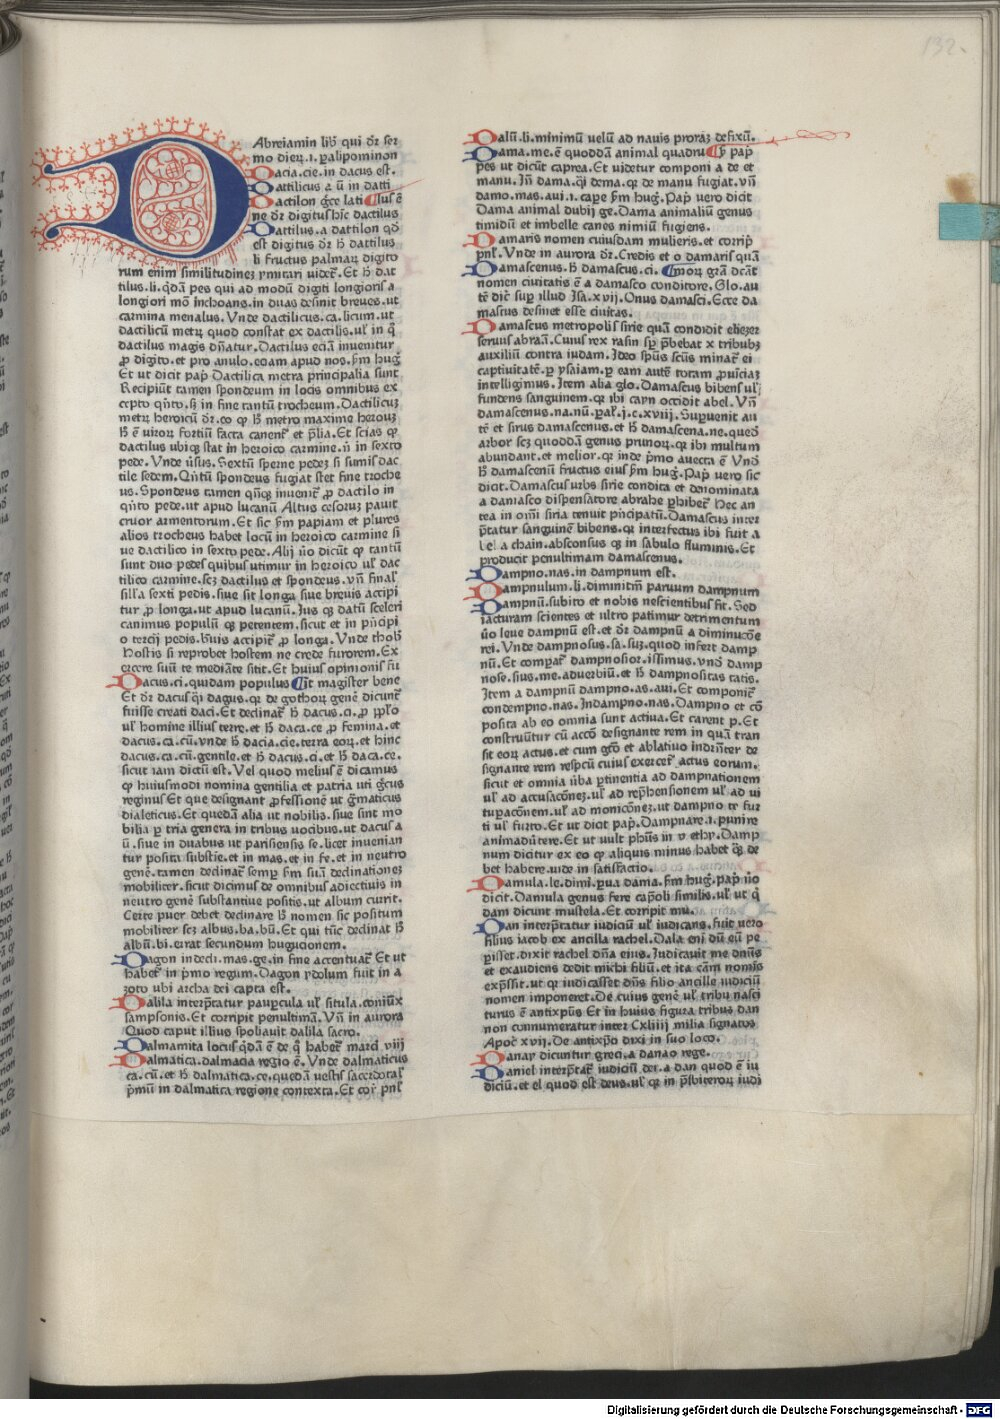 132.
DAbreiamin lib̄ qui dr̄ ser
mo dieꝝ.i.palipominon
Dacia.cie.in dacus est.
Dactilicus a ū in dacti
Dactilon grece lati
ne dr̄ digitus hīc dactilus
Dactilus.a dactilon qđ
est digitus dr̄ ħ dactilus
li fructus palmaꝝ digito
rum enim similitudinez ymitari vident̄. Et ħ dac
tilus.li.qdā pes qui ad modū digiti longioris a
longiori mō inchoans.in duas desinit breues.ut
carmina menalus. Vnde dactilicus.ca.licum.ut
dactilicū metꝝ quod constat ex dactilis.ul̄ in q̄
dactilus magis dn̄atur. Dactilus eciā inuenitur
ꝓ digito.et pro anulo.eciam apud nos.ẜm huḡ
Et ut dicit pap̄ Dactilica metra principalia sunt
Recipiūt tamen spondeum in locis omnibus ex
cepto qn̄to.ẜ in fine tantū trocheum. Dactilicuz
metꝝ heroicū dr̄.eo ꝙ ħ metro maxime herouz
ħ ē uiroꝝ fortiū facta canent̄ et p̄lia. Et scias ꝙ
dactilus ubiqꝫ stat in heroico carmine.n̄ in sexto
pede. Vnde ūsus. Sextū sperne pedez si sumis dac
tile sedem. Qn̄tū spondeus fugiat stet fine troche
us. Spondeus tamen qn̄qꝫ inuenit̄ ꝓ dactilo in
qn̄to pede.ut apud lucanū Altus cesoruz pauit
cruor armentorum. Et sic ẜm papiam et plures
alios trocheus habet locū in heroico carmine si
ue dactilico in sexto pede. Alij ūo dicūt ꝙ tantū
sunt duo pedes quibus utimur in heroico ul̄ dac
tilico carmine.scz dactilus et spondeus. vn̄ final̄
sill̄a sexti pedis.siue sit longa siue breuis accipi
tur ꝓ longa.ut apud lucanū. Jus qꝫ datū sceleri
canimus populū qꝫ petentem.sicut et in p̄ncipi
o tercij pedis.b̄uis accipit̄ ꝓ longa. Vnde thob̄
Hostis si reprobet hostem ne crede furorem. Ex
ercere suū te mediāte sitit. Et huius opinionis fu
Dacus.ci.quidam populus it magister bene
Et dr̄ dacus q̄i dagus.qꝛ de gothoꝝ genē dicunt̄
fuisse creati daci. Et declinat̄ ħ dacus.ci.ꝓ pp̄lo
ul̄ homine illius terre.et ħ daca.ce ꝓ femina.et
dacus.ca.cū.vnde ħ dacia.cie.terra eoꝝ.et hinc
dacus.ca.cū.gentile.et ħ dacus.ci.et ħ daca.ce.
sicut iam dictū est. Vel quod melius ē dicamus
ꝙ huiusmodi nomina gentilia et patria uti grecus
reginus Et que designant ꝓfessionē ut gr̄maticus
dialeticus. Et quedā alia ut nobilis.siue sint mo
bilia ꝑ tria genera in tribus uocibus.ut dacus a
ū.siue in duabus ut parisiensis se.licet inuenian
tur posita substiē.et in mas.et in fe.et in neutro
genē.tamen declinat̄ semꝑ ẜm suā declinationez
mobiliter.sicut dicimus de omnibus adiectiuis in
neutro genē substantiue positis.ut album currit.
Certe puer debet declinare ħ nomen sic positum
mobiliter scz albus.ba.bū. Et qui tūc declinat ħ
albū.bi.errat secundum hugucionem.
Dagon indecli.mas.ge.in fine accentuat̄ Et ut
habet̄ in p̄mo regum. Dagon ydolum fuit in a
zoto ubi archa dei capta est.
Dalila interp̄tatur paupcula ul̄ situla.coniūx
sampsonis. Et corripit penultimā. Vn̄ in aurora
Quod caput illius spoliauit dalila sacro.
Dalmamita locus qdā ē de q̄ habet̄ marci viij
Dalmatica.dalmacia regio ē. Vnde dalmaticus
ca.cū.et ħ dalmatica.ce.quedā uestis sacerdotal̄
p̄mū in dalmatica regione contexta. Et cor̄ pnl̄
Dalū.li.minimū uelū ad nauis proraz defixū.
Dama.me.ē quoddā animal quadru p̄ pap̄
pes ut dicūt caprea. Et uidetur componi a de et
manu. Jn̄ dama.q̄i dema.qꝛ de manu fugiat. vn̄
damo.mas.aui.i.cape ẜm huḡ. Pap̄ uero dicit
Dama animal dubij ge. Dama animaliū genus
timidū et imbelle canes nimiū fugiens.
Damaris nomen cuiusdam mulieris.et corrip̄
pnl̄. Vnde in aurora dr̄. Credis et o damaris quā
Damascenus.ħ damascus.ci. moꝝ grā dcāt
nomen ciuitatis ē a damasco conditore. Glo.au
tē dic̄ sup̄ illud Isa.xvij. Onus damasci. Ecce da
mascus desinet esse ciuitas.
Damascus metropolis sirie quā condidit eliezer
seruus abraā. Cuius rex rasin sꝑ p̄bebat x tribubꝫ
auxiliū contra iudam. Ideo sp̄us sc̄us minat̄ ei
captiuitatē.ꝑ ysaiam.ꝑ eam autē totam ꝓuīciaz
intelligimus. Item alia glo. Damascus bibens ul̄
fundens sanguinem.qꝛ ibi cayn occidit abel. Vn̄
damascenus.na.nū.paꝉ.j.c.xviij. Supuenit au
tē et sirus damascenus.et ħ damascena.ne.quedā
arbor scz quoddā genus prunoꝝ.qꝛ ibi multum
abundant.et melior.qꝛ inde p̄mo auecta ē Vnd̄
ħ damascenū fructus eius ẜm huḡ. Pap̄ vero sic
dicit. Damascus urbs sirie condita et denominata
a damasco dispensatore abrahe ꝑhibet̄ Hec an
tea in om̄i siria tenuit p̄ncipatū. Damascus inter
p̄tatur sanguinē bibens.qꝛ interfectus ibi fuit a
bel a chain.absconsus qꝫ in sabulo fluminis. Et
producit penultimam damascenus.
Dampno.nas.in dampnum est.
Dampnulum.li.diminitm̄ paruum dampnum
Dampnū.subito et nobis nescientibus fit. Sed
iacturam scientes et ultro patimur detrimentum
ūo leue dampnū est.et dr̄ dampnū a diminucōe
rei. Vnde dampnosus.sa.suz.quod infert damp
nū. Et comparat̄ dampnosior.issimus.vnd̄ damp
nose.sius.me.aduerbiū.et ħ dampnositas tatis.
Item a dampnū dampno.as.aui. Et componit̄
condempno.nas. Indampno.nas. Dampno et cō
posita ab eo omnia sunt actiua. Et carent p. Et
construūtur cū accō designante rem in quā tran
sit eoꝝ actus.et cum gtō et ablatiuo indrn̄ter de
signante rem respcū cuius exercet̄ actus eorum.
sicut et omnia ūba ꝑtinentia ad dampnationem
ul̄ ad accusacōnez.ul̄ ad rep̄hensionem ul̄ ad ui
tupacōnem.ul̄ ad monicōnez.ut dampno te fur
ti ul̄ furto. Et ut dicit pap̄. Dampnare.i.punire
animaduertere. Et ut uult phūs in v ethy. Damp
num dicitur ex eo ꝙ aliquis minus habet qꝫ de
bet habere.uide in satisfactio.
Damula.le.dimi.ꝑua dama.ẜm huḡ.pap̄ ūo
dicit. Damula genus fere capoli similis.ul̄ ut q̄
dam dicunt mustela. Et corripit mu.
Dan interp̄tatur iudiciū ul̄ iudicans.fuit uero
filius iacob ex ancilla rachel. Bala eni dū eū pe
pisset.dixit rachel dn̄a eius. Judicauit me dn̄us
et exaudiens dedit michi filiū.et ita cām nomīs
exp̄ssit.ut qꝛ iudicasset dn̄s filio ancille iudiciū
nomen imponeret. De cuius genē ul̄ tribu nasci
turus ē antixp̄us Et in huius figura tribus dan
non connumeratur inter Cxliiij milia signatos
Apoc̄ xvij. De antixp̄o dixi in suo loco.
Danay dicuntur greci.a danao rege.
Daniel interp̄tat̄ iudiciū dei.a dan quod ē iu
diciū.et el quod est deus.ul̄ qꝛ in p̄sbiteroꝝ iudi
Digitalisierung gefördert durch die Deutsche Forschungsgemeinschaft - DFG